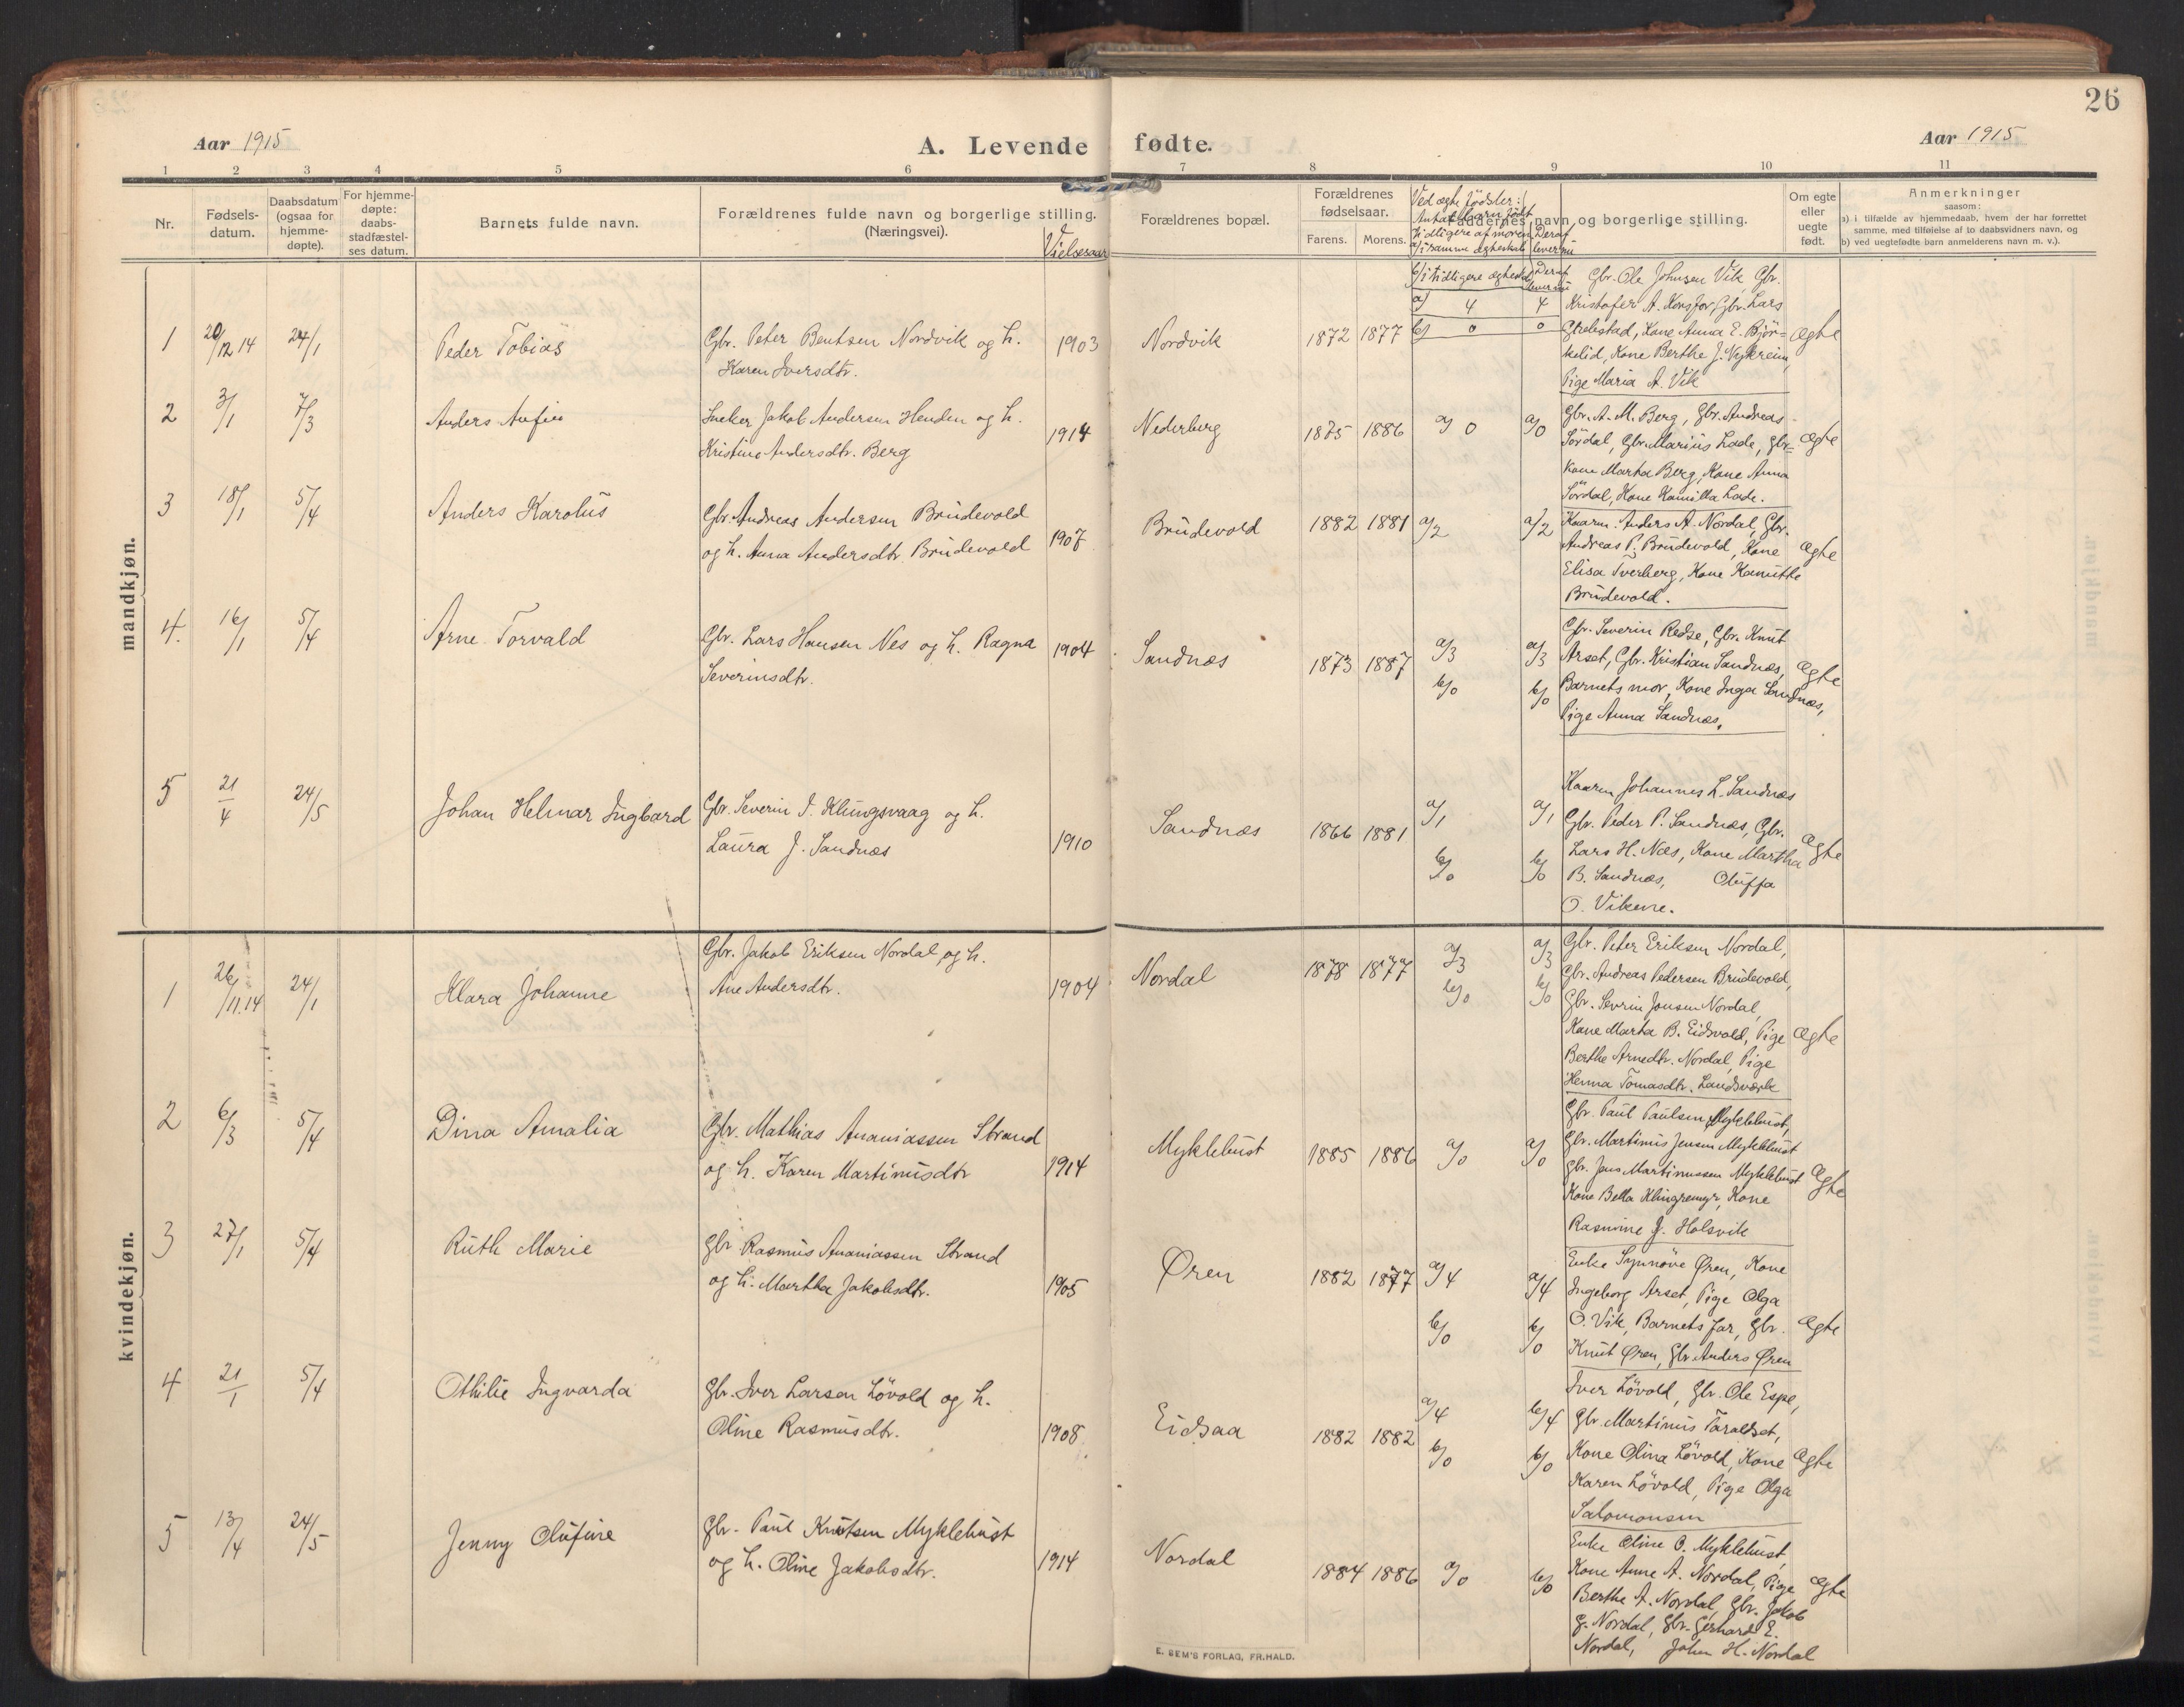 26
Aar 1915
A. Levende fødte.
Aar 1915
1 2 3 4 5 6 7 8 9 10 11
Nr.
Fødsels-
datum.
Daabsdatum
(ogsaa for
hjemme-
døpte).
For hjemme-
døpte:
daabs-
stadfæstel-
ses datum.
Barnets fulde navn.
Forældrenes fulde navn og borgerlige stilling.
(Næringsvei).
Vielsesaar
Forældrenes bopæl.
Forældrenes
fødselsaar.
Farens. Morens.
Ved ægte fødsler:
Antal barn født
tidligere af moren
a/ i samme ægteskab
Deraf
lever nu
b/ i tidligere ægteskab
Deraf
lever nu
Faddernes navn og borgerlige stilling.
Om egte
eller
uegte
født.
Anmerkninger
saasom:
a) i tilfælde av hjemmedaab, hvem der har forrettet
samme, med tilføielse af to daabsvidners navn, og
b) ved uegtefødte barn anmelderens navn m. v.).
mandkjøn.
1
20/12 14
24/1
Peder Tobias
Gbr. Peter Bentsen Nordvik og h.
Karen Iversdtr.
1903
Nordvik
1872 1877
a) 4 4
b) 0 0
Gbr. Ole Johnsen Vik, Gbr.
Kristofer A. Gbr. Lars
Kone Anna E. Björ-
kelid, Kone Berthe J. Nykreim,
Pige Maria A. Vik
Ægte
2
3/1
7/3
Anders Anfin
Sneker Jakob Andersen Henden og h.
Kristine Andersdtr. Berg
1914
Nederberg
1875 1886
a/0 a/0
Gbr. A. M. Berg, Gbr. Andreas
Sördal, Gbr. Marius Lade, Gbr-
kone Marta Berg, Kone Anna
Sördal, Kone Kamilla Lade.
Ægte
3
18/1
5/4
Anders Karolus
Gbr. Andreas Andersen Brudevold
og h. Anna Andersdtr. Brudevold
1907
Brudevold
1882 1881
a/2 a/2
Kaarm. Anders A. Nordal, Gbr.
Andreas P. Brudevold, Kone
Elisa Sverberg, Kone Kanutte
Brudevold.
Ægte
4.
16/1
5/4
Arne Torvald
Gbr. Lars Hansen Nes og h. Ragna
Severinsdtr.
1904
Sandnæs
1873 1887
a/3 a/3
b/0 b/0
Gbr. Severin Redse, Gbr. Knut
Arset, Gbr. Kristian Sandnæs,
Barnets mor, Kone Inga Sandnæs,
Pige Anna Sandnæs.
Ægte
5
21/4
24/5
Johan Helmar Ingbard
Gbr. Severin I. Klungsvaag og h.
Laura J. Sandnæs
1910
Sandnæs
1866 1881
a/1 a/1
b/0 b/0
Kaarm Johannes L. Sandnæs
Gbr. Peder P. Sandnæs, Gbr.
Lars H. Næs, Kone Martha
B. Sandnæs, Oluffa
O. Vikene.
Ægte
kvindekjøn.
1
26/11.14
24/1
Klara Johanne
Gbr. Jakob Eriksen Nordal og h.
Ane Andersdtr.
1904
Nordal
1878 1877
a/3 a/3
b/0 b/0
Gbr. Peter Eriksen Nordal,
Gbr. Andreas Pedersen Brudevold,
Gbr. Severin Jonsen Nordal,
Kone Marta B. Eidsvold, Pige
Berthe Arnedtr. Nordal, Pige
Henna Tomasdtr. Landsværk
Ægte
2
6/3
5/4
Dina Amalia
Gbr. Mathias Ananiassen Strand
og h. Karen Martinusdtr
1914
Myklebust
1885 1886
a/0 a/0
Gbr. Paul Paulsen Myklebust,
Gbr. Martinus Jensen Myklebust
Gbr. Jens Martinussen Myklebust
Kone Bella Kone
Rasmine J. Holsvik
Ægte
3
27/1
5/4
Ruth Marie
Gbr. Rasmus Ananiassen Strand
og h. Martha Jakobsdtr.
1905
Øren
1882 1877
a/4 a/4
b/0 b/0
Enke Synnöve Øren, Kone
Ingeborg Arset, Pige Olga
O. Vik, Barnets far, Gbr.
Knut Øren, Gbr. Anders Øren
Ægte
4
21/1
5/4
Othilie Ingvarda
Gbr. Iver Larsen Lövold og h.
Oline Rasmusdtr.
1908
Eidsaa
1882 1882
a/4 b/4
b/0 b/0
Iver Lövold, Gbr. Ole Espe,
Gbr. Martinus Taraldset,
Kone Olina Lövold, Kone
Karen Lövold, Pige Olga
Salomonsen
Ægte
5
13/4
24/5
Jenny Olufine
Gbr. Paul Knutsen Myklebust
og h. Oline Jakobsdtr.
1914
Nordal
1884 1886
a/0 b/0
Enke Oline O. Myklebust,
Kone Anne A. Nordal, Pige
Berthe A. Nordal, Gbr. Jakob
G. Nordal, Gbr. Gerhard E.
Nordal, Johan H. Nordal
Ægte
E. SEM'S FORLAG, FR.HALD.